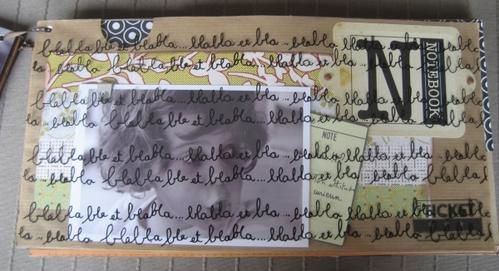 blabla bla et blabla... blabla et bla... blabla
bla bla... blabla bla et blabla... blabla et bla
blabla bla et blabla... blabla et bla... blabla
bla... blabla bla et blabla... blabla et bla...
blabla bla et blabla... blabla et bla... blabla
bla... blabla bla et blabla... blabla et bla...
blabla bla et blabla... blabla et bla... blabla
bla... blabla bla et blabla... blabla et bla...
blabla bla et blabla... blabla et bla... blabla
N
NOTEBOOK
NOTE
TICKET